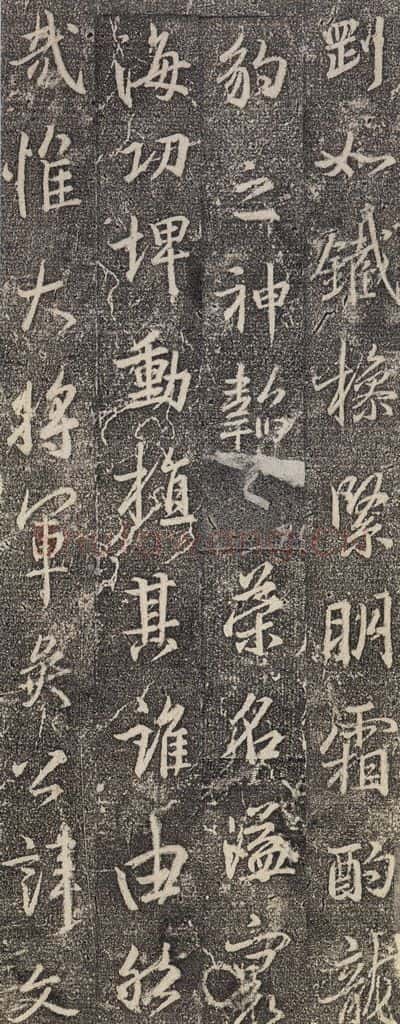 剛如鐵操緊明霜酌龍
豹之神榮名溢寰
海功埤動植其誰由然
哉惟大將軍矣公諱文